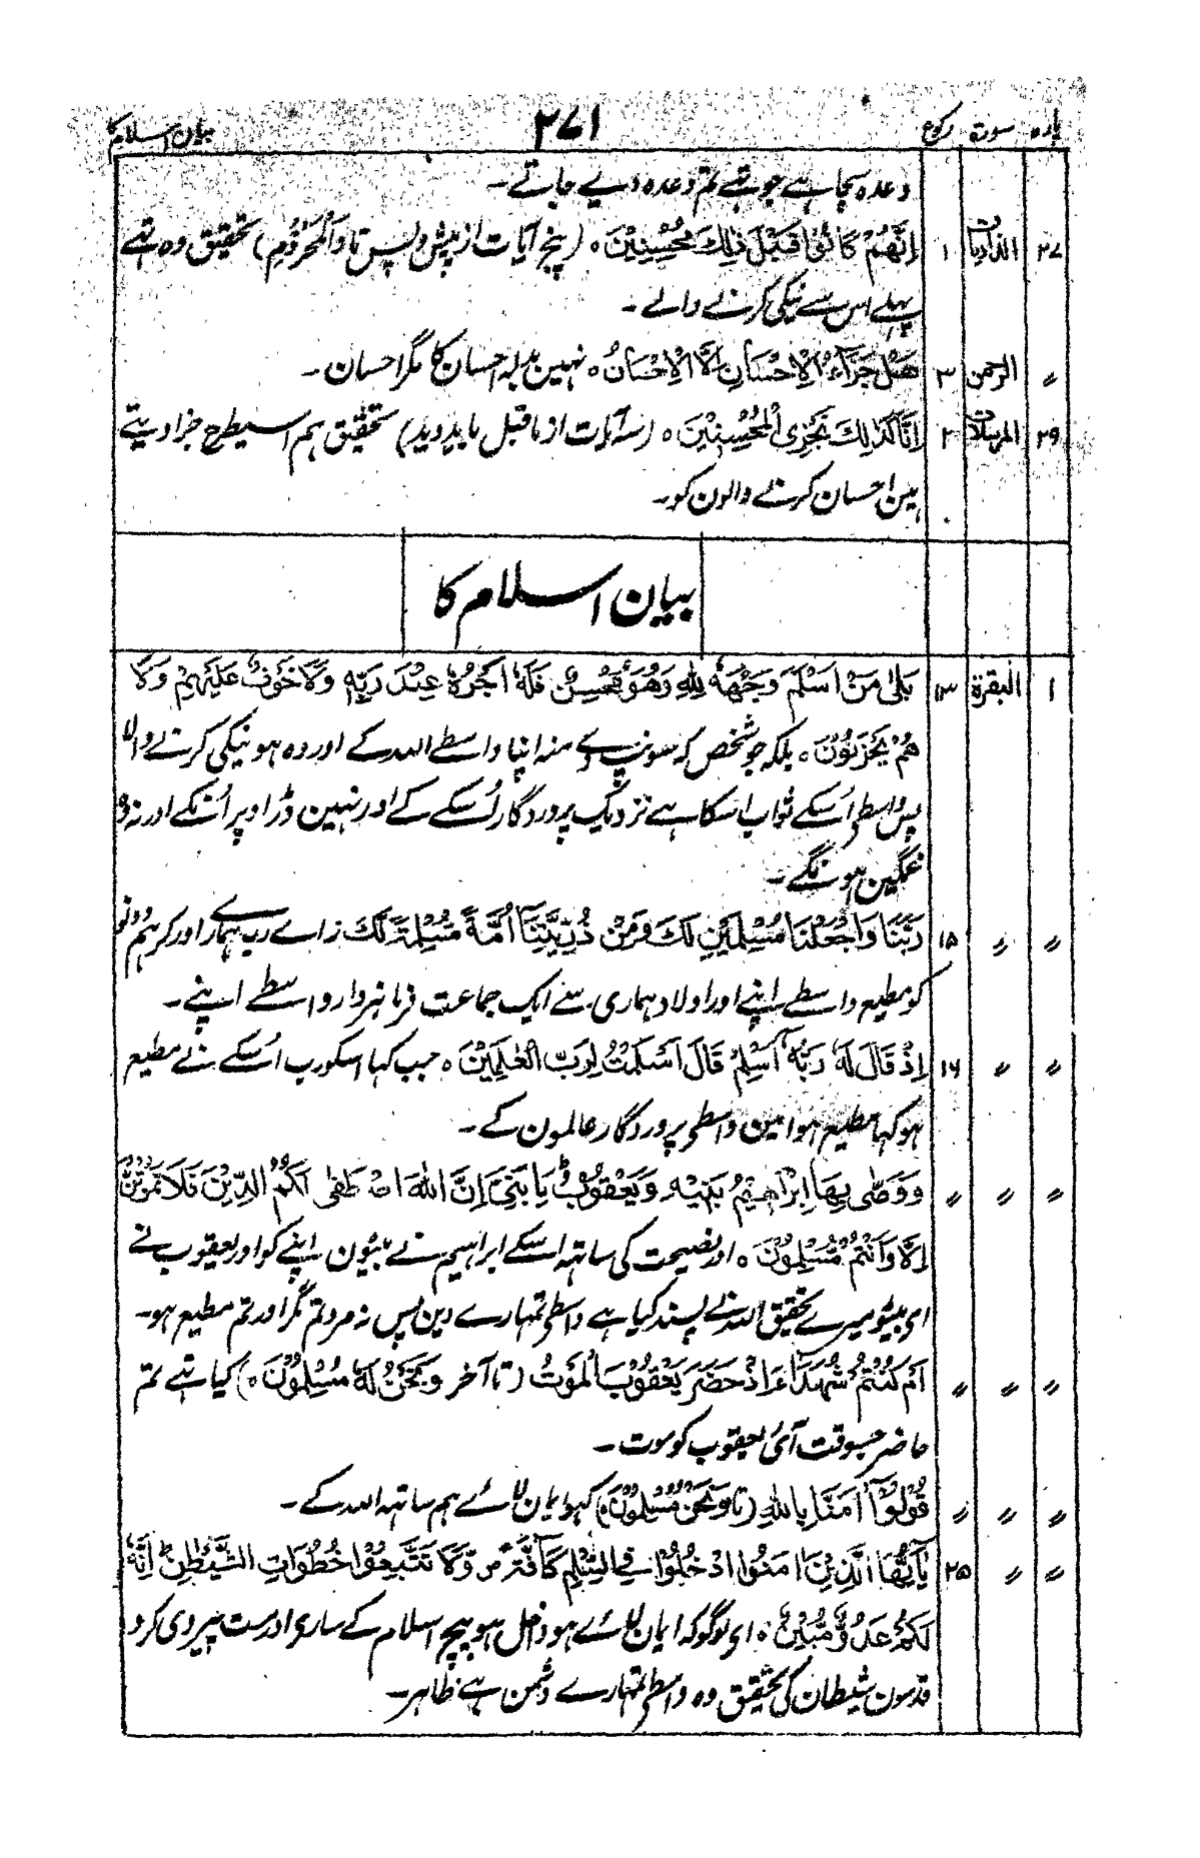 پارہ سورۃ رکوع ۲۷۱ بیان اسلام کا
وعدہ سچا ہے جو تھے تم وعدہ دیے جاتے۔
۲۷ الذاریات ۱ اِنَّهُمْ كَانُوْا قَبْلَ ذٰلِكَ مُحْسِنِيْنَ ه (پنج آیات از پیش و پس تا وَالْمَحْرُوْمِ) تحقیق وہ تھے
پہلے اس سے نیکی کرنے والے۔
〃 الرحمن ۳ هَلْ جَزَآءُ الْاِحْسَانِ اِلَّا الْاِحْسَانُ ه نہین بدلہ احسان کا مگر احسان۔
۲۹ المرسلات ۲ اِنَّا كَذٰلِكَ نَجْزِی الْمُحْسِنِيْنَ ه (سہ آیات از ماقبل باید دید) تحقیق ہم اسیطرح جزا دیتے
ہین احسان کرنے والون کو۔
بیان اسلام کا
۱ البقرة ۱۳ بَلٰى مَنْ اَسْلَمَ وَجْهَهٗ لِلّٰهِ وَهُوَ مُحْسِنٌ فَلَهٗ اَجْرُهٗ عِنْدَ رَبِّهٖ وَلَا خَوْفٌ عَلَيْهِمْ وَلَا
هُمْ يَحْزَنُوْنَ ه بلکہ جو شخص کہ سونپ دے منہ اپنا واسطے اللہ کے اور وہ ہو نیکی کرنے والا
پس واسطے اُسکے ثواب اسکا ہے نزدیک پروردگار اُسکے کے اور نہین ڈر اوپر اُنکے اور نہ وہ
غمگین ہونگے۔
〃 〃 ۱۵ رَبَّنَا وَاجْعَلْنَا مُسْلِمَيْنِ لَكَ وَمِنْ ذُرِّيَّتِنَآ اُمَّةً مُّسْلِمَةً لَّكَ اے رب ہمارے اور کر ہم دونو
کو مطیع واسطے اپنے اور اولاد ہماری سے ایک جماعت فرمانبردار واسطے اپنے۔
〃 〃 ۱۶ اِذْ قَالَ لَهٗ رَبُّهٗٓ اَسْلِمْ قَالَ اَسْلَمْتُ لِرَبِّ الْعٰلَمِيْنَ ه جب کہا اسکو رب اُسکے نے مطیع
ہو کہا مطیع ہوا مین واسطے پروردگار عالمون کے۔
〃 〃 〃 وَوَصّٰى بِهَآ اِبْرٰهِيْمُ بَنِيْهِ وَيَعْقُوْبُ يَا بَنِیَّ اِنَّ اللّٰهَ اصْطَفٰى لَكُمُ الدِّيْنَ فَلَا تَمُوْتُنَّ
اِلَّا وَاَنْتُمْ مُّسْلِمُوْنَ ه اور نصیحت کی ساتھہ اسکے ابراہیم نے بیٹون اپنے کو اور یعقوب نے
ای بیٹو میرے تحقیق اللہ نے پسند کیا ہے واسطے تمہارے دین پس نہ مرو تم مگر اور تم مطیع ہو۔
〃 〃 〃 اَمْ كُنْتُمْ شُهَدَآءَ اِذْ حَضَرَ يَعْقُوْبَ الْمَوْتُ (تا آخر وَنَحْنُ لَهٗ مُسْلِمُوْنَ ه) کیا تھے تم
حاضر جسوقت آئی یعقوب کو موت۔
〃 〃 〃 قُوْلُوْٓا اٰمَنَّا بِاللّٰهِ (تا وَنَحْنُ لَهٗ مُسْلِمُوْنَ ه) کہو ایمان لائے ہم ساتھہ اللہ کے۔
〃 〃 ۲۵ يٰٓاَيُّهَا الَّذِيْنَ اٰمَنُوا ادْخُلُوْا فِی السِّلْمِ كَآفَّةً وَّلَا تَتَّبِعُوْا خُطُوَاتِ الشَّيْطٰنِ اِنَّهٗ
لَكُمْ عَدُوٌّ مُّبِيْنٌ ه ای لوگو کہ ایمان لائے ہو داخل ہو بیچ اسلام کے سارے اور مت پیروی کرو
قدمون شیطان کی تحقیق وہ واسطے تمہارے دشمن ہے ظاہر۔